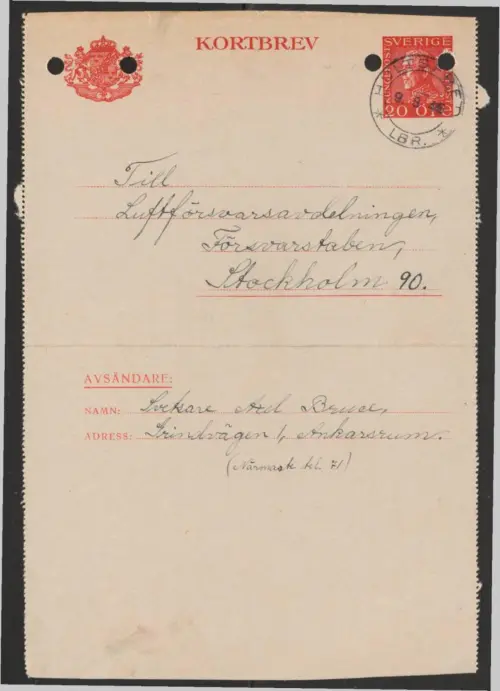 KORTBREV
SVERIGE
20 ÖRE
LBR.
Till
Luftförsvarsavdelningen,
Försvarstaben,
Stockholm 90.
AVSÄNDARE:
NAMN: Axel Bruce,
ADRESS: Grindvägen 1, Ankarsrum.
(Närmask tel. 71)